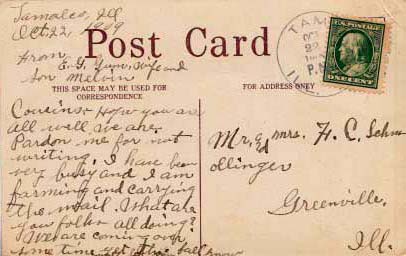 Tamalco, Ill
Oct. 22, 1909
From
E. G. and wife and
son Melvin
Post Card
THIS SPACE MAY BE USED FOR
CORRESPONDENCE
FOR ADDRESS ONLY
TAM
OCT
22
P.M.
ILL.
U.S. POSTAGE
ONE CENT
Cousins - How you are
all well we are.
Pardon me for not
writing. I have been
very busy and I am
farming and carrying
the mail. What are
you folks all doing?
We are coming over
some time yet this fall
Mr. & Mrs. H. C. Schm
ollinger
Greenville,
Ill.